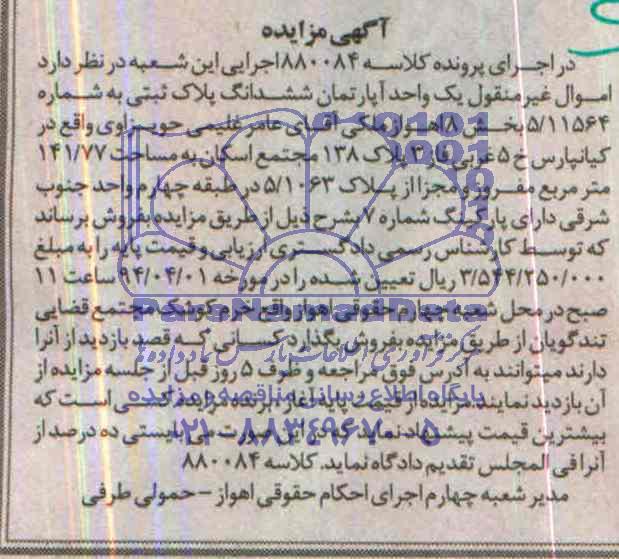 آگهی مزایده
در اجرای پرونده کلاسه ۸۸۰۰۸۴ اجرایی این شعبه در نظر دارد
اموال غیرمنقول یک واحد آپارتمان ششدانگ پلاک ثبتی به شماره
۵/۱۱۵۶۴ بخش ۸ اهواز ملکی آقای عامر غلیمی حویزاوی واقع در
کیانپارس خ ۵ غربی فاز ۳ پلاک ۱۳۸ مجتمع اسکان به مساحت ۱۴۱/۷۷
متر مربع مفروز و مجزا از پلاک ۵/۱۰۶۳ در طبقه چهارم واحد جنوب
شرقی دارای پارکینگ شماره ۷ بشرح ذیل از طریق مزایده بفروش برساند
که توسط کارشناس رسمی دادگستری ارزیابی و قیمت پایه را به مبلغ
۳/۵۴۴/۲۵۰/۰۰۰ ریال تعیین شده را در مورخه ۹۴/۰۴/۰۱ ساعت ۱۱
صبح در محل شعبه چهارم حقوقی اهواز واقع خرم کوشک مجتمع قضایی
تندگویان از طریق مزایده بفروش بگذارد کسانی که قصد بازدید از آنرا
دارند میتوانند به آدرس فوق مراجعه و ظرف ۵ روز قبل از جلسه مزایده از
آن بازدید نمایند مزایده از قیمت پایه آغاز برنده مزایده کسی است که
بیشترین قیمت پیشنهاد نماید در این صورت می بایستی ده درصد از
آنرا فی المجلس تقدیم دادگاه نماید. کلاسه ۸۸۰۰۸۴
مدیر شعبه چهارم اجرای احکام حقوقی اهواز – حمولی طرفی
ParsNamadData
پایگاه اطلاع رسانی مناقصه و مزایده
۰۲۱-۸۸۳۴۹۶۷۰-۵